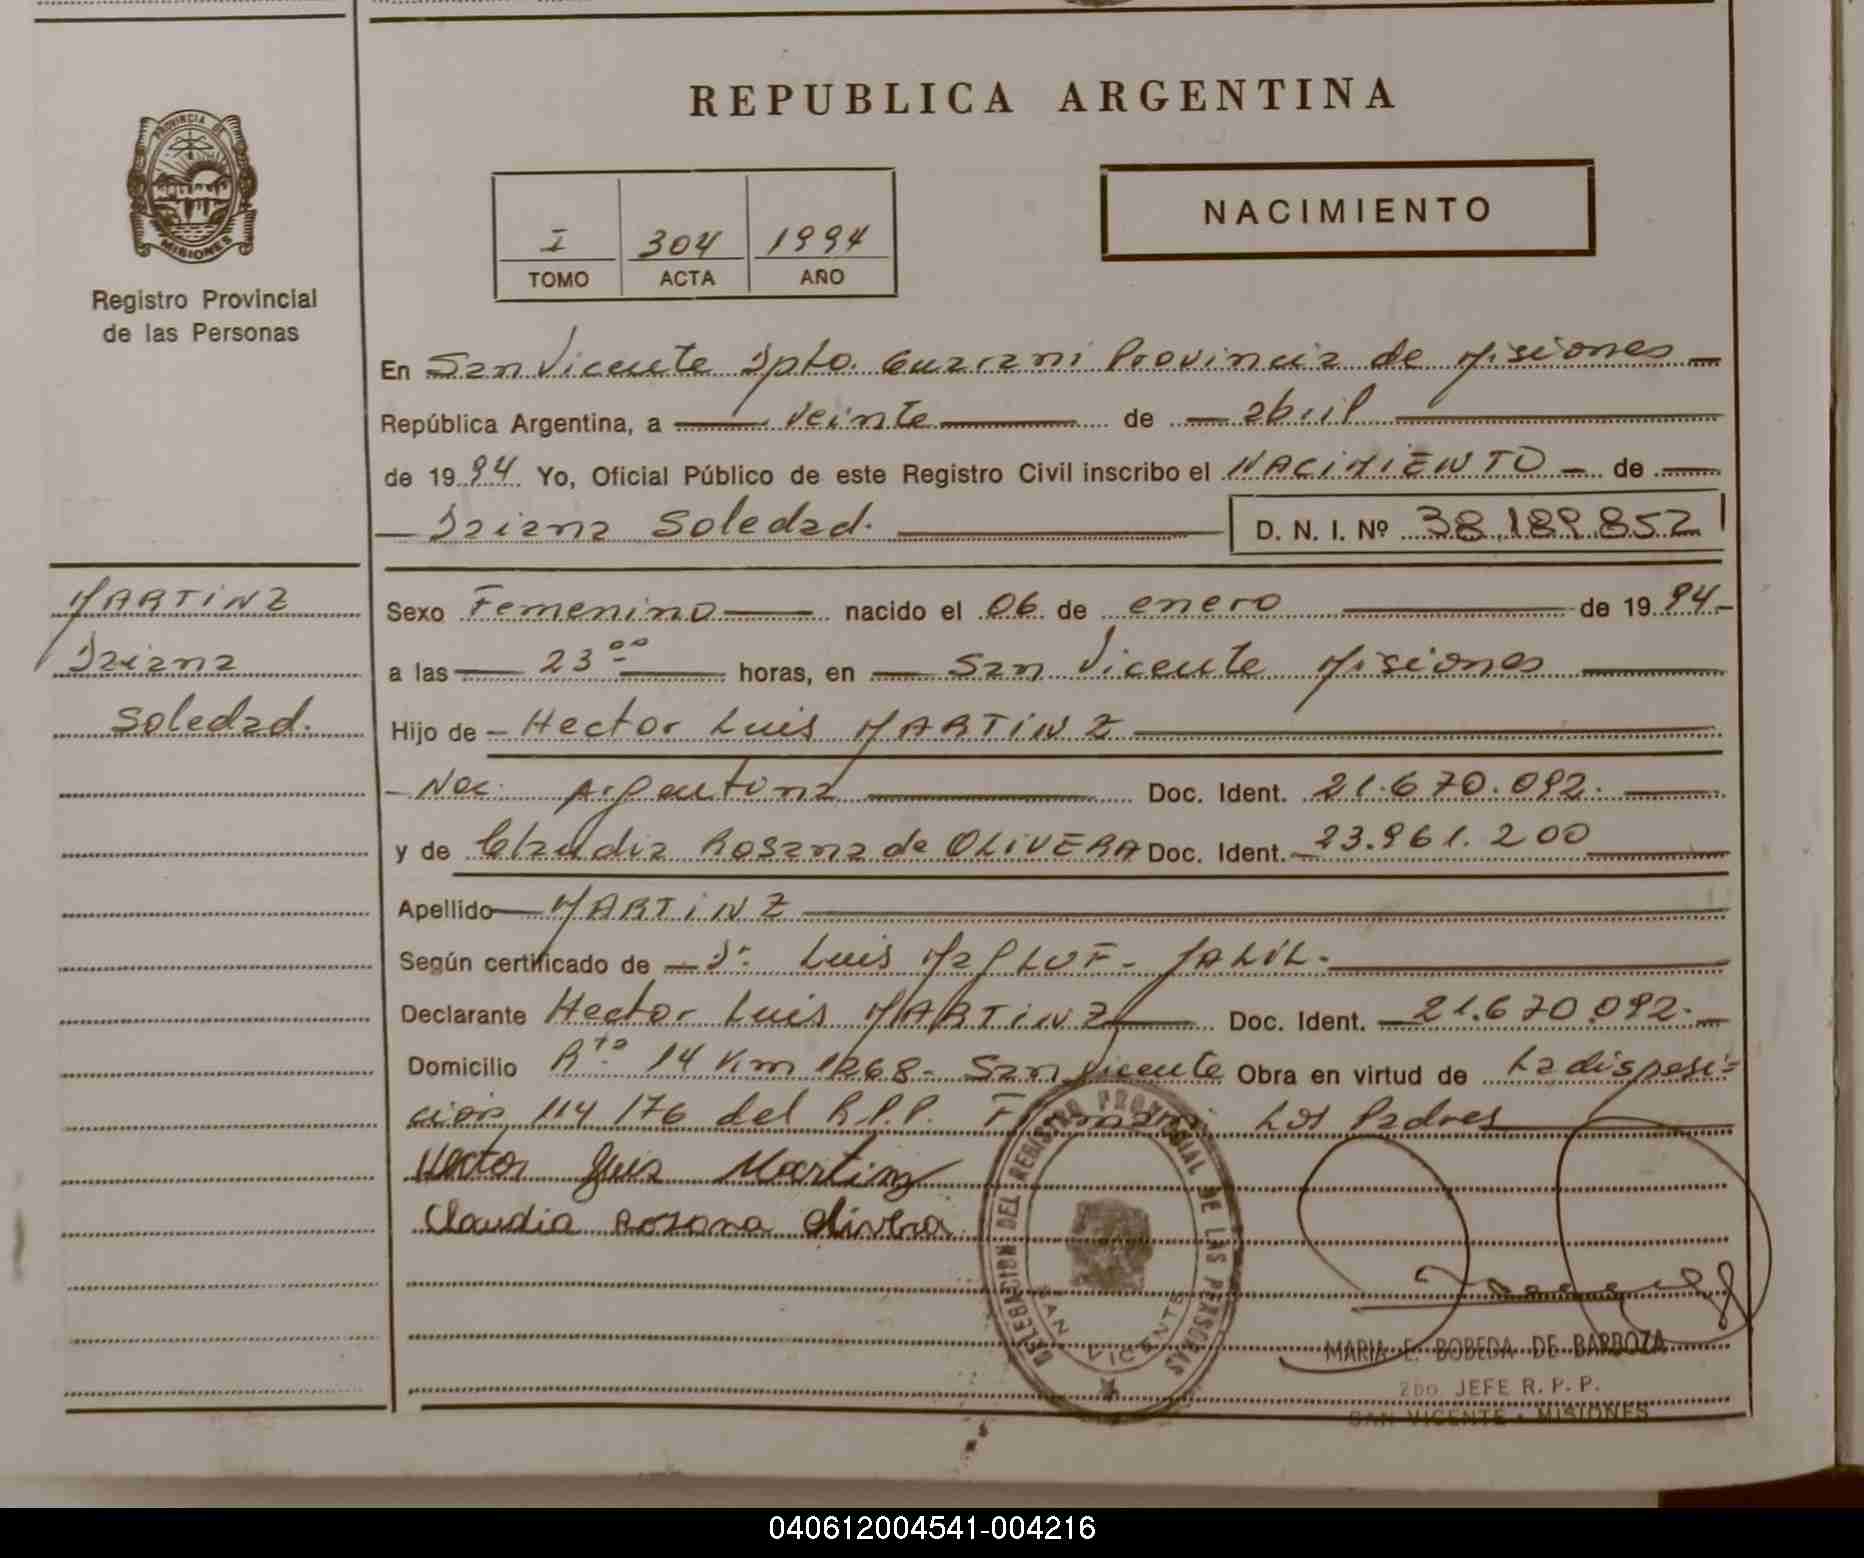 REPUBLICA ARGENTINA
PROVINCIA DE
MISIONES
Registro Provincial
de las Personas
I 304 1994
TOMO ACTA AÑO
NACIMIENTO
En San Vicente Dpto. Guarani Provincia de Misiones
República Argentina, a veinte de abril
de 1994 Yo, Oficial Público de este Registro Civil inscribo el NACIMIENTO de
Daiana Soledad. D. N. I. Nº 38.189.852
MARTINZ
Daiana
Soledad.
Sexo Femenino nacido el 06 de enero de 1994
a las 23 00 horas, en San Vicente Misiones
Hijo de Hector Luis MARTINZ
Nac. Argentina Doc. Ident. 21.670.092.
y de Claudia Rosana de OLIVERA Doc. Ident. 23.961.200
Apellido MARTINZ
Según certificado de Dr. Luis JALIL.
Declarante Hector Luis MARTINZ Doc. Ident. 21.670.092.
Domicilio Rta 14 Km 1268 - San Vicente Obra en virtud de La disposi=
cion 114/76 del R.P.P. Firman: Los Padres
Hector Luis Martinz
Claudia Rosana Olivera
DELEGACION DEL REGISTRO PROVINCIAL DE LAS PERSONAS
SAN VICENTE
MARIA E. BOBEDA DE BARBOZA
2DO. JEFE R. P. P.
SAN VICENTE - MISIONES
040612004541-004216